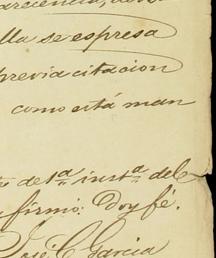 lla se espresa
previa citacion
como está man
de 1ª instª del
firmó: Doy fé.
José C. Garcia